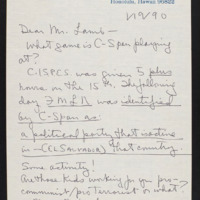 Honolulu, Hawaii 96822
1/19/90
Dear Mr. Lamb—
What game is C-Span playing
at?
C.I.S.P.E.S. was given 5 plus
hours on the 15th. The following
day FMLN was identified
by C-Span as:
a political party that is active
in — (EL SALVADOR) that country.
Some activity!
Are those kids working for you pro-
communist/pro terrorist or what?